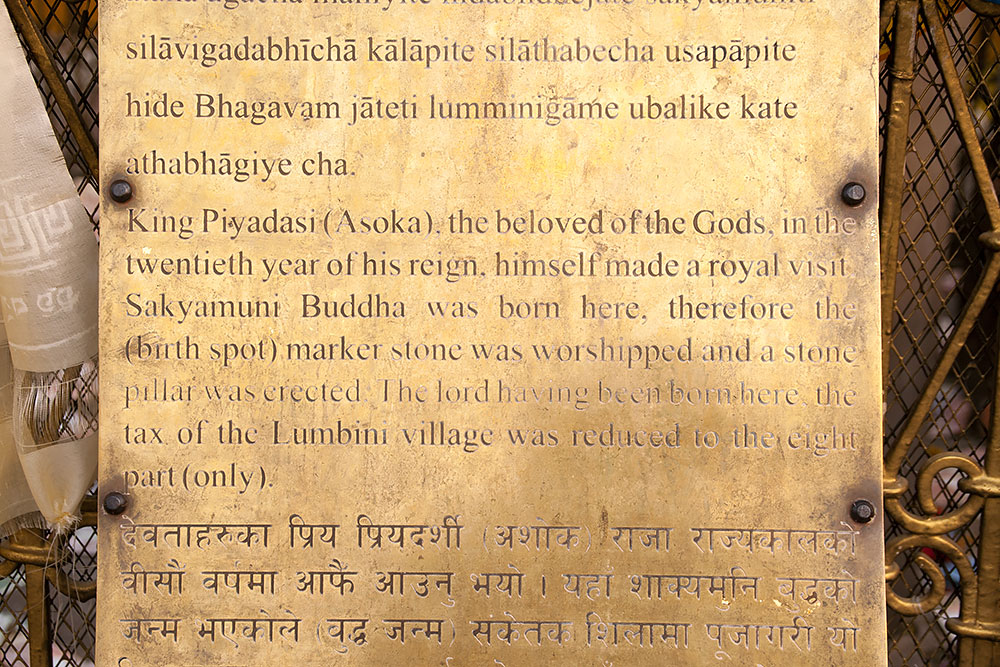 silāvigadabhīchā kālāpite silāthabecha usapāpite
hide Bhagavaṃ jāteti lumminigāme ubalike kate
athabhāgiye cha.
King Piyadasi (Asoka), the beloved of the Gods, in the
twentieth year of his reign, himself made a royal visit
Sakyamuni Buddha was born here, therefore the
(birth spot) marker stone was worshipped and a stone
pillar was erected. The lord having been born here, the
tax of the Lumbini village was reduced to the eight
part (only).
देवताहरुका प्रिय प्रियदर्शी (अशोक) राजा राज्यकालको
वीसौं वर्षमा आफै आउनु भयो । यहाँ शाक्यमुनि बुद्धको
जन्म भएकोले (वुद्ध जन्म) संकेतक शिलामा पूजागरी यो